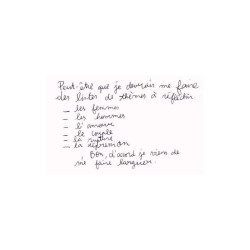 Peut-être que je devrais me faire
des listes de thèmes à réfléchir
_ les femmes
_ les hommes
_ l'amour
_ le couple
_ la rupture
_ la dépression
Bon, d'accord je viens de
me faire larguer.